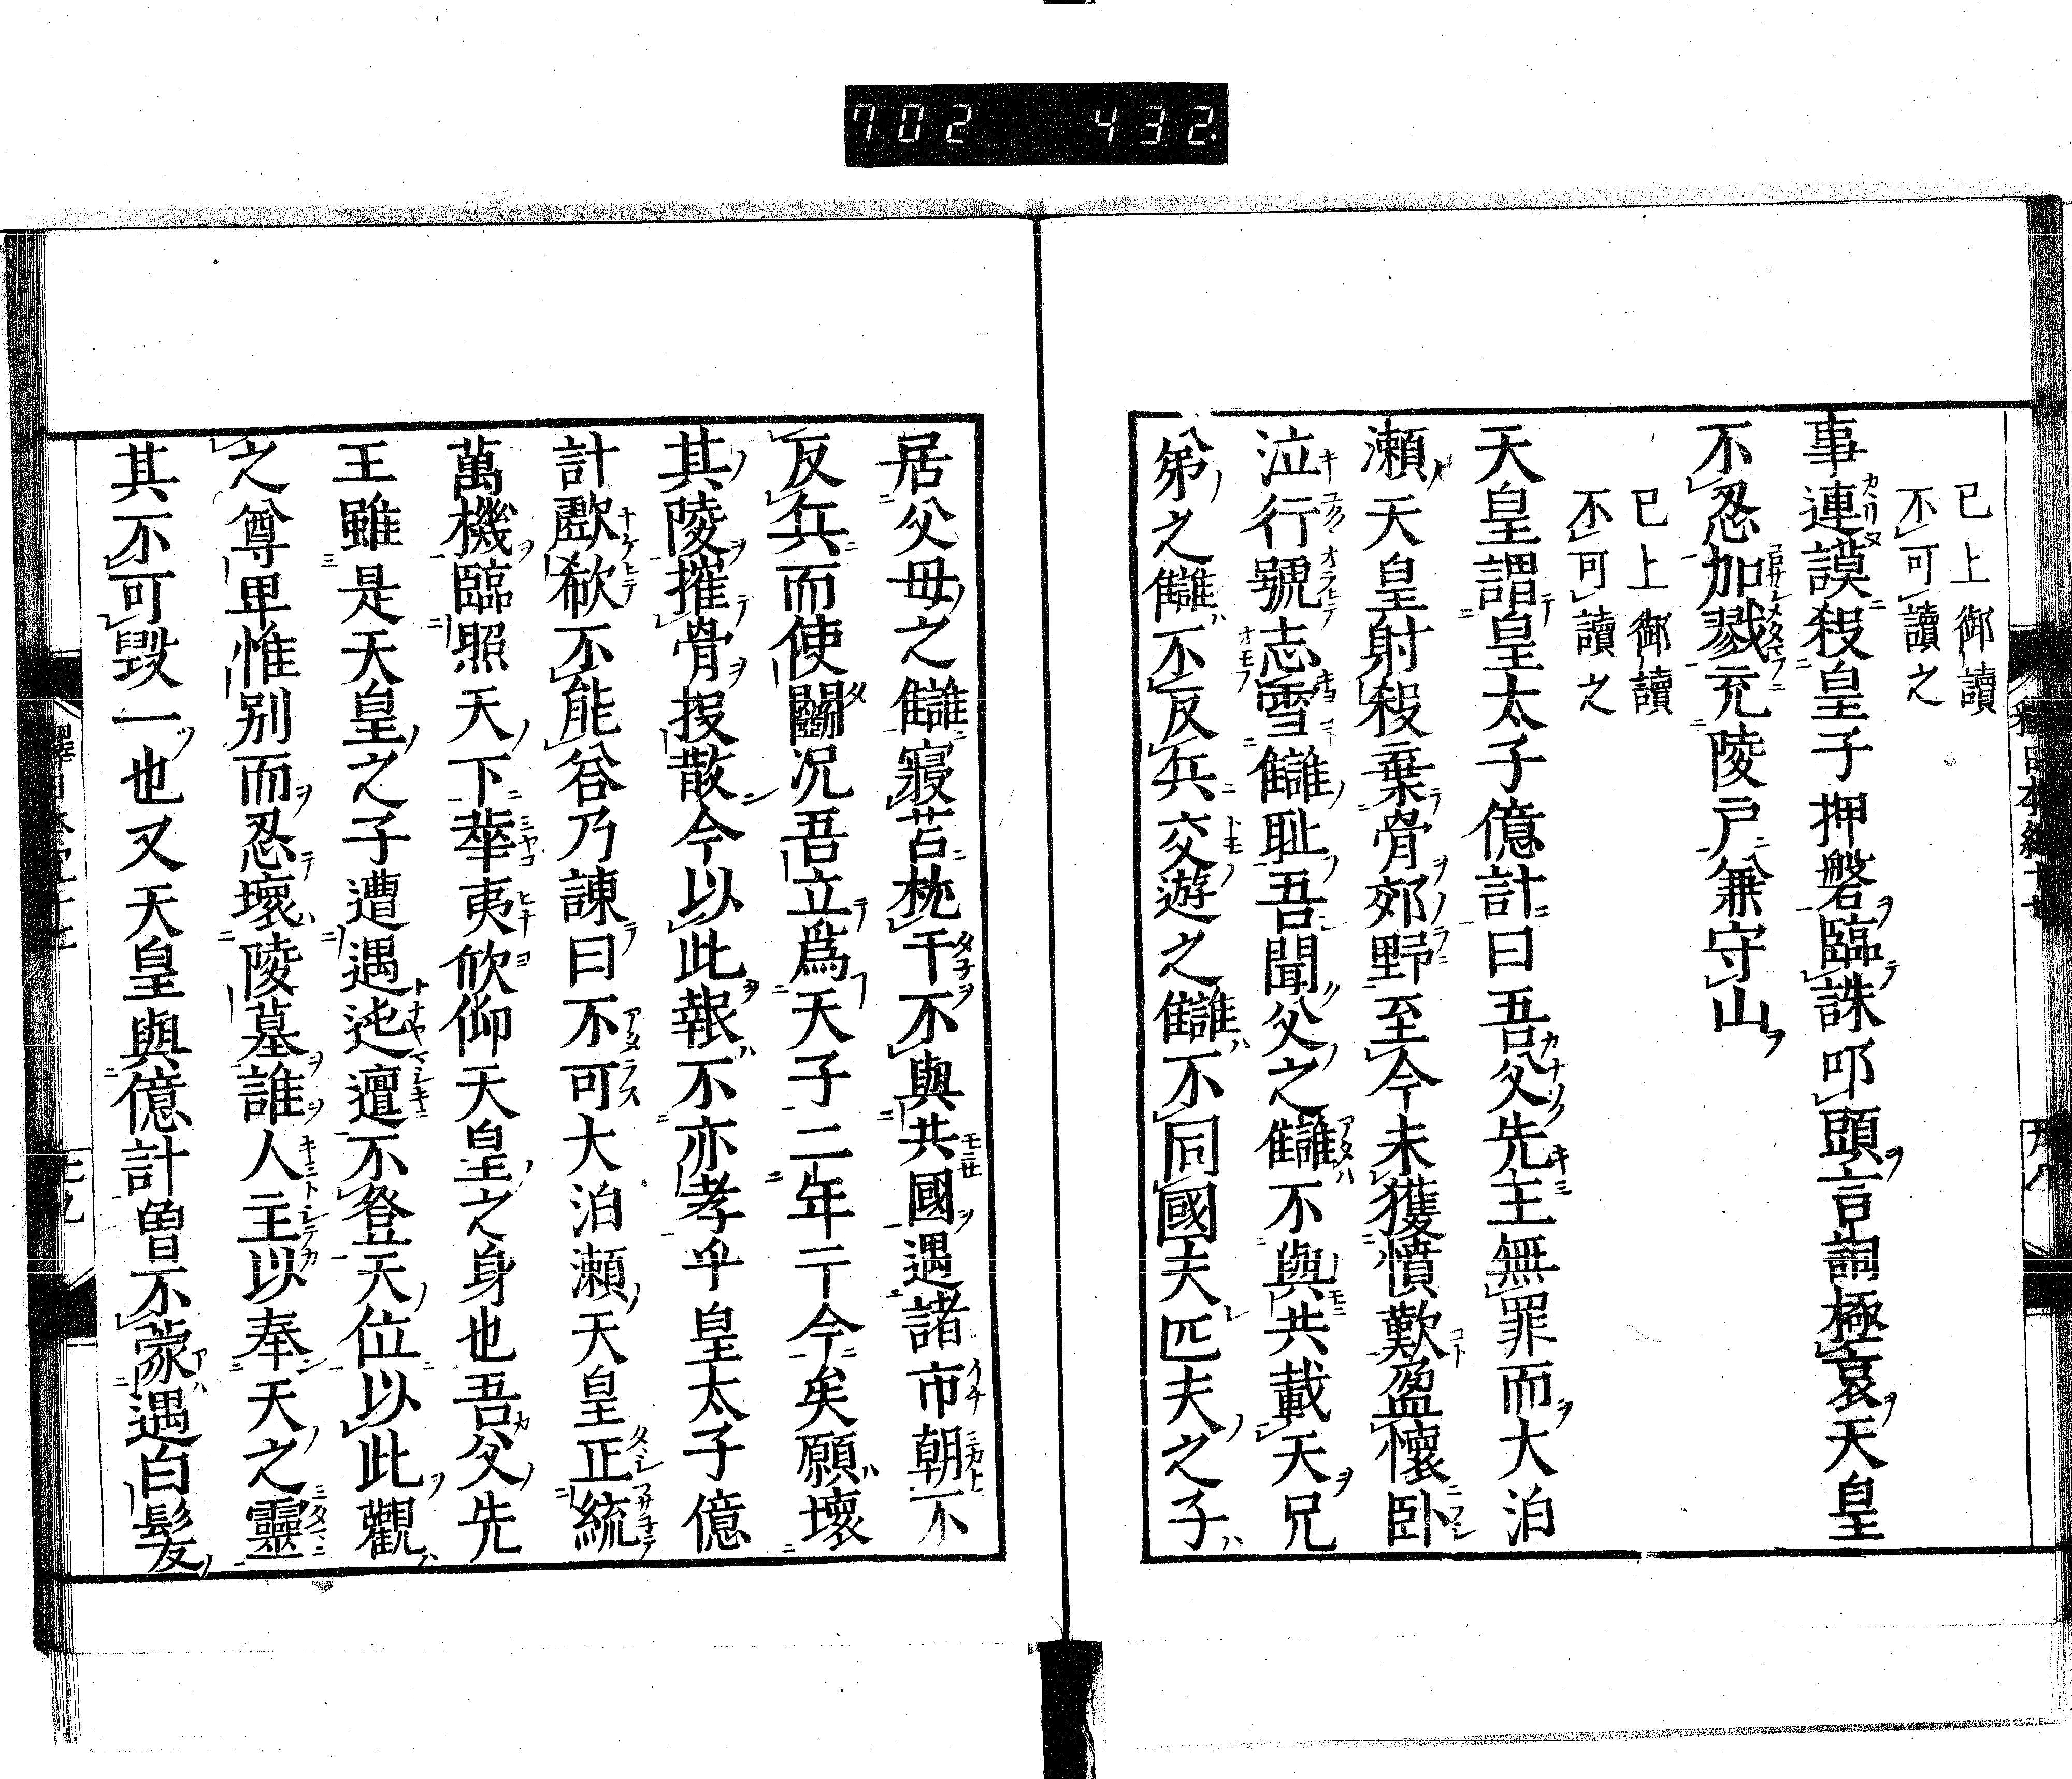 702 432
已上御讀
不可讀之
事連謨殺皇子押磐臨誅叩頭言詞極哀天皇
不忍加戮充陵戸兼守山
已上御讀
不可讀之
天皇謂皇太子億計曰吾父先主無罪而大泊
瀬天皇射殺棄骨郊野至今未獲憤歎盈懷臥
泣行號志雪讎耻吾聞父之讎不與共載天兄
弟之讎不反兵交遊之讎不同國夫匹夫之子
居父母之讎寢苫枕干不與共國遇諸市朝不
反兵而使鬭况吾立爲天子二年于今矣願壞
其陵摧骨投散今以此報不亦孝乎皇太子億
計歔欷不能答乃諌曰不可大泊瀬天皇正統
萬機臨照天下華夷欣仰天皇之身也吾父先
王雖是天皇之子遭遇迍邅不登天位以此觀
之尊卑惟別而忍壞陵墓誰人主以奉天之靈
其不可毀一也又天皇與億計曽不蒙遇白髪